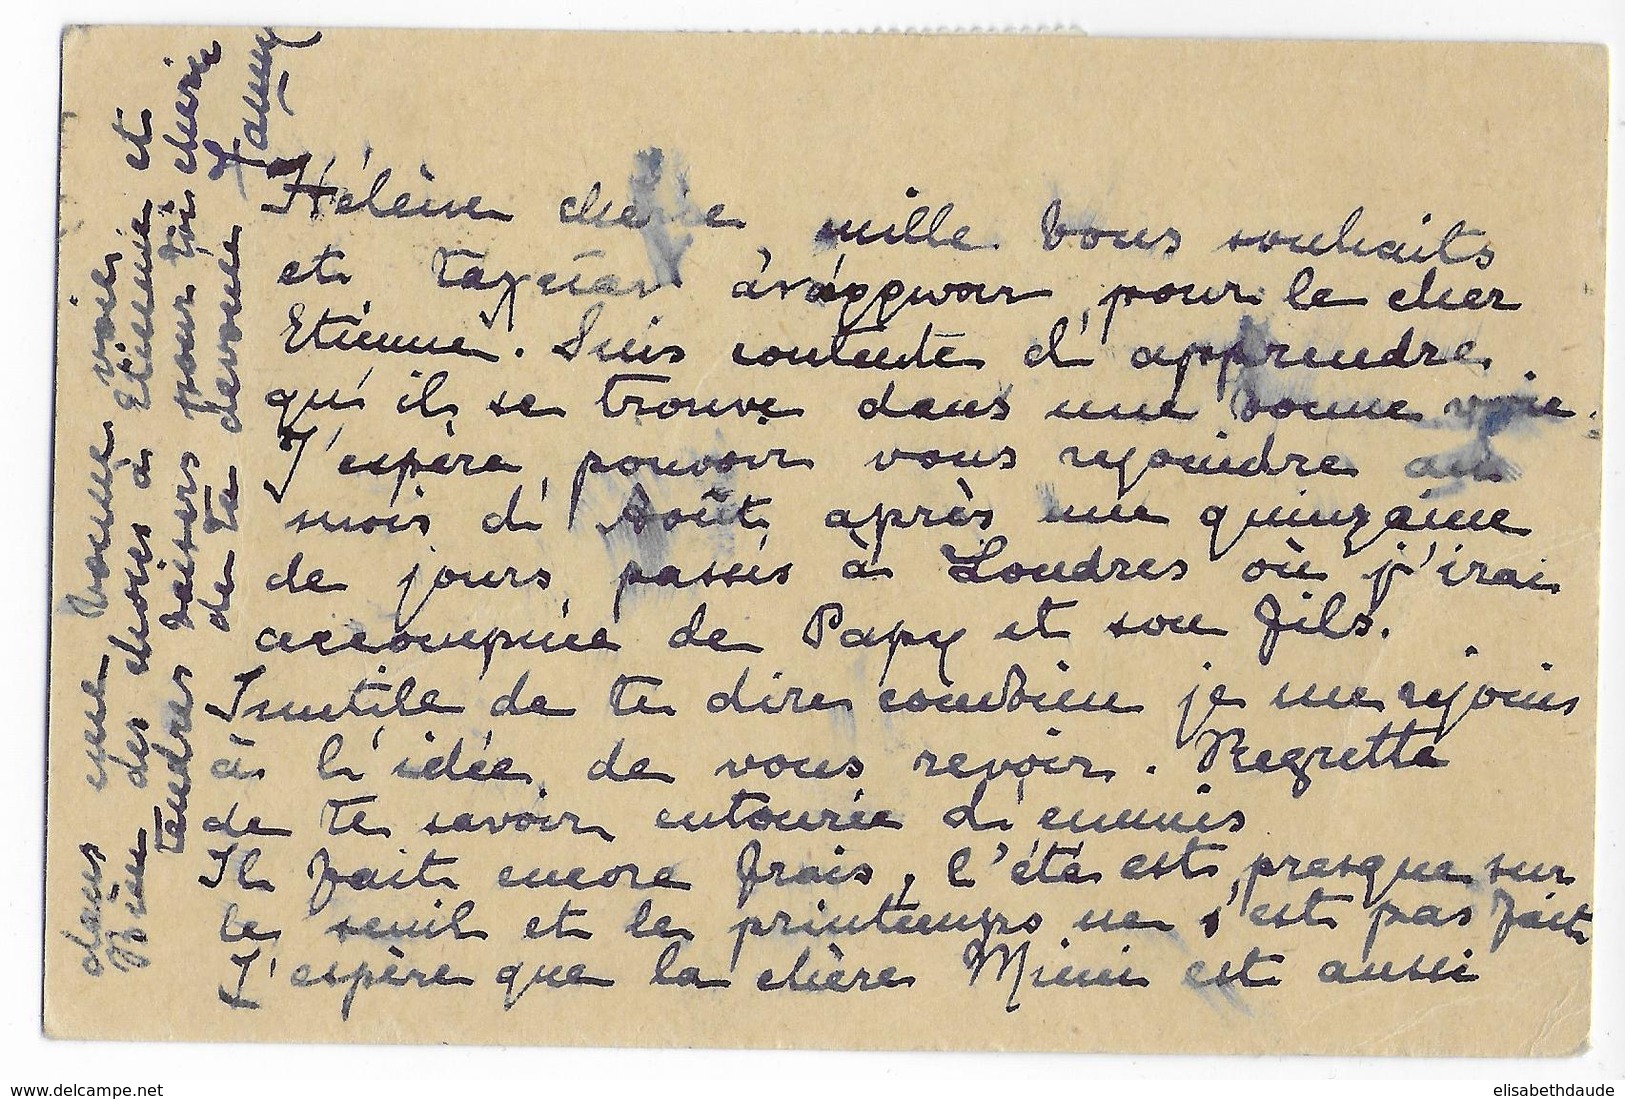 Hélène cherie, mille bons souhaits
et à pour le cher
Etienne. Suis contente d'apprendre
qu'il se trouve dans une bonne voie.
J'espère pouvoir vous rejoindre au
mois d'Août après une quinzaine
de jours passés à Londres où j'irai
accompnée de Papy et son fils.
Inutile de te dire combien je me rejouis
à l'idée de vous revoir. Regrette
de te savoir entourée d'ennuis
Il fait encore frais, l'été est presque sur
le seuil et le printemps ne s'est pas fait
J'espère que la chère Mimi est aussi
dans une bonne voie.
Bien des choses à Etienne et
tendres baisers pour toi cherie
de ta devouée
Fanny
delcampe.net
elisabethdaude